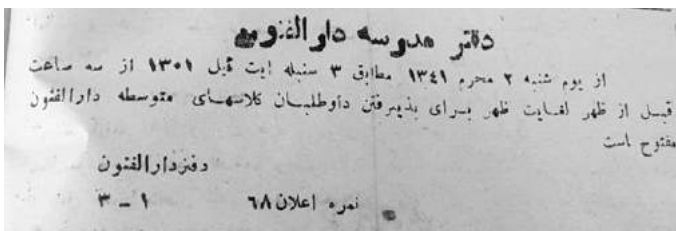 دفتر مدرسه دارالفنون
از یوم شنبه ۲ محرم ۱۳٤۱ مطابق ۳ سنبله ایت ئیل ۱۳۰۱ از سه ساعت
قبل از ظهر لغایت ظهر برای پذیرفتن داوطلبان کلاسهای متوسطه دارالفنون
مفتوح است
دفتردارالفنون
نمره اعلان ٦٨ ۱ – ۳